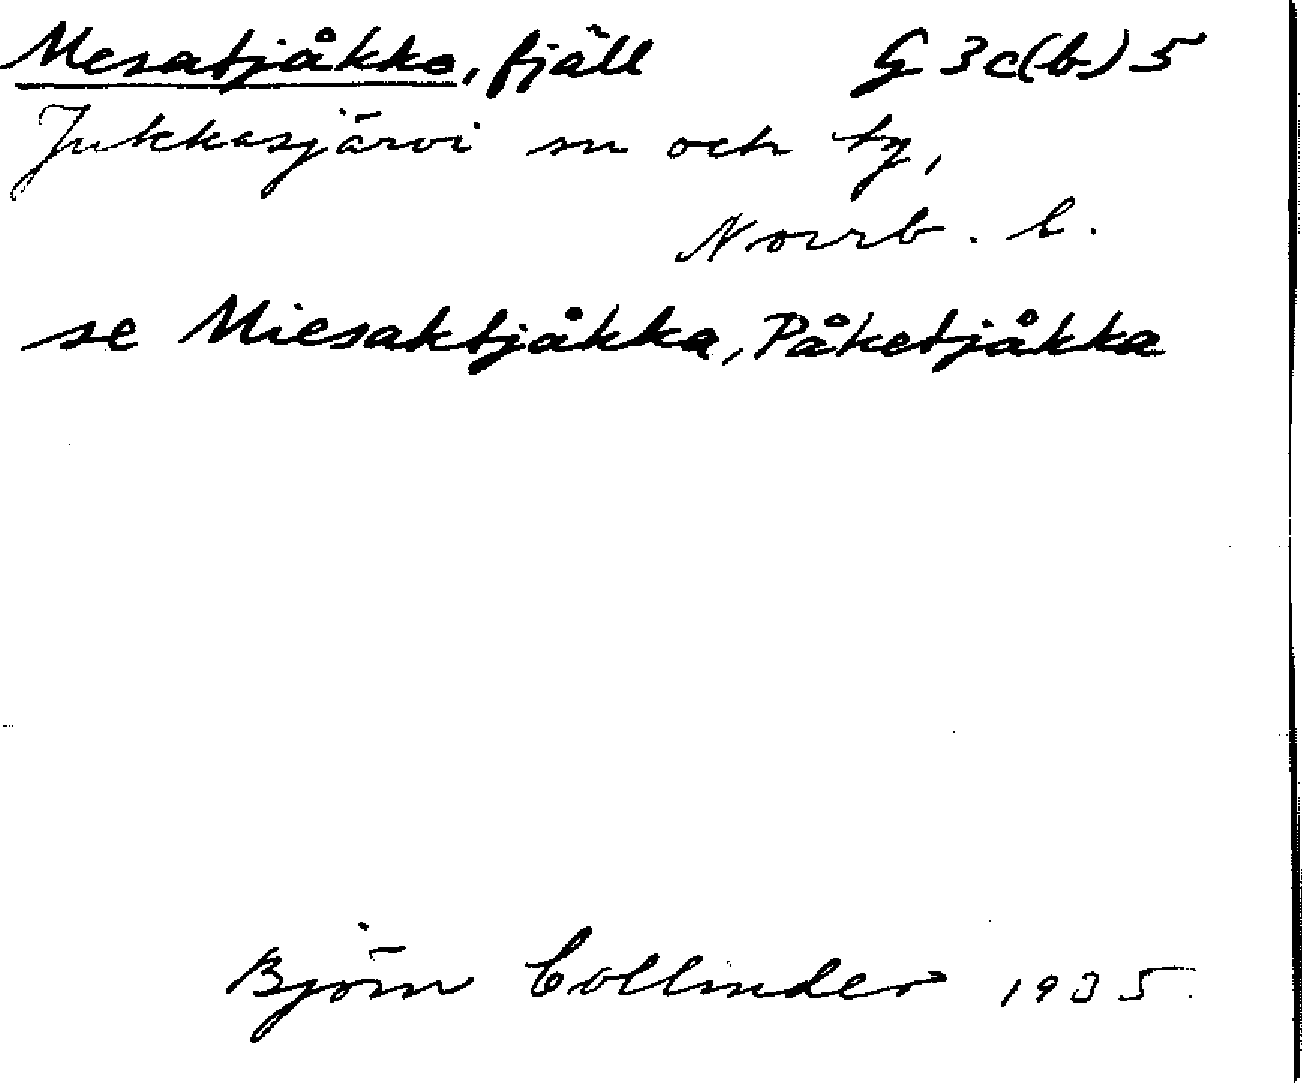 Mesatjåkko, fjäll G 3c(b)5
Jukkasjärvi sn och tg,
Norrb. l.
se Miesaktjåkka, Påketjåkka
Björn Collinder 1935.